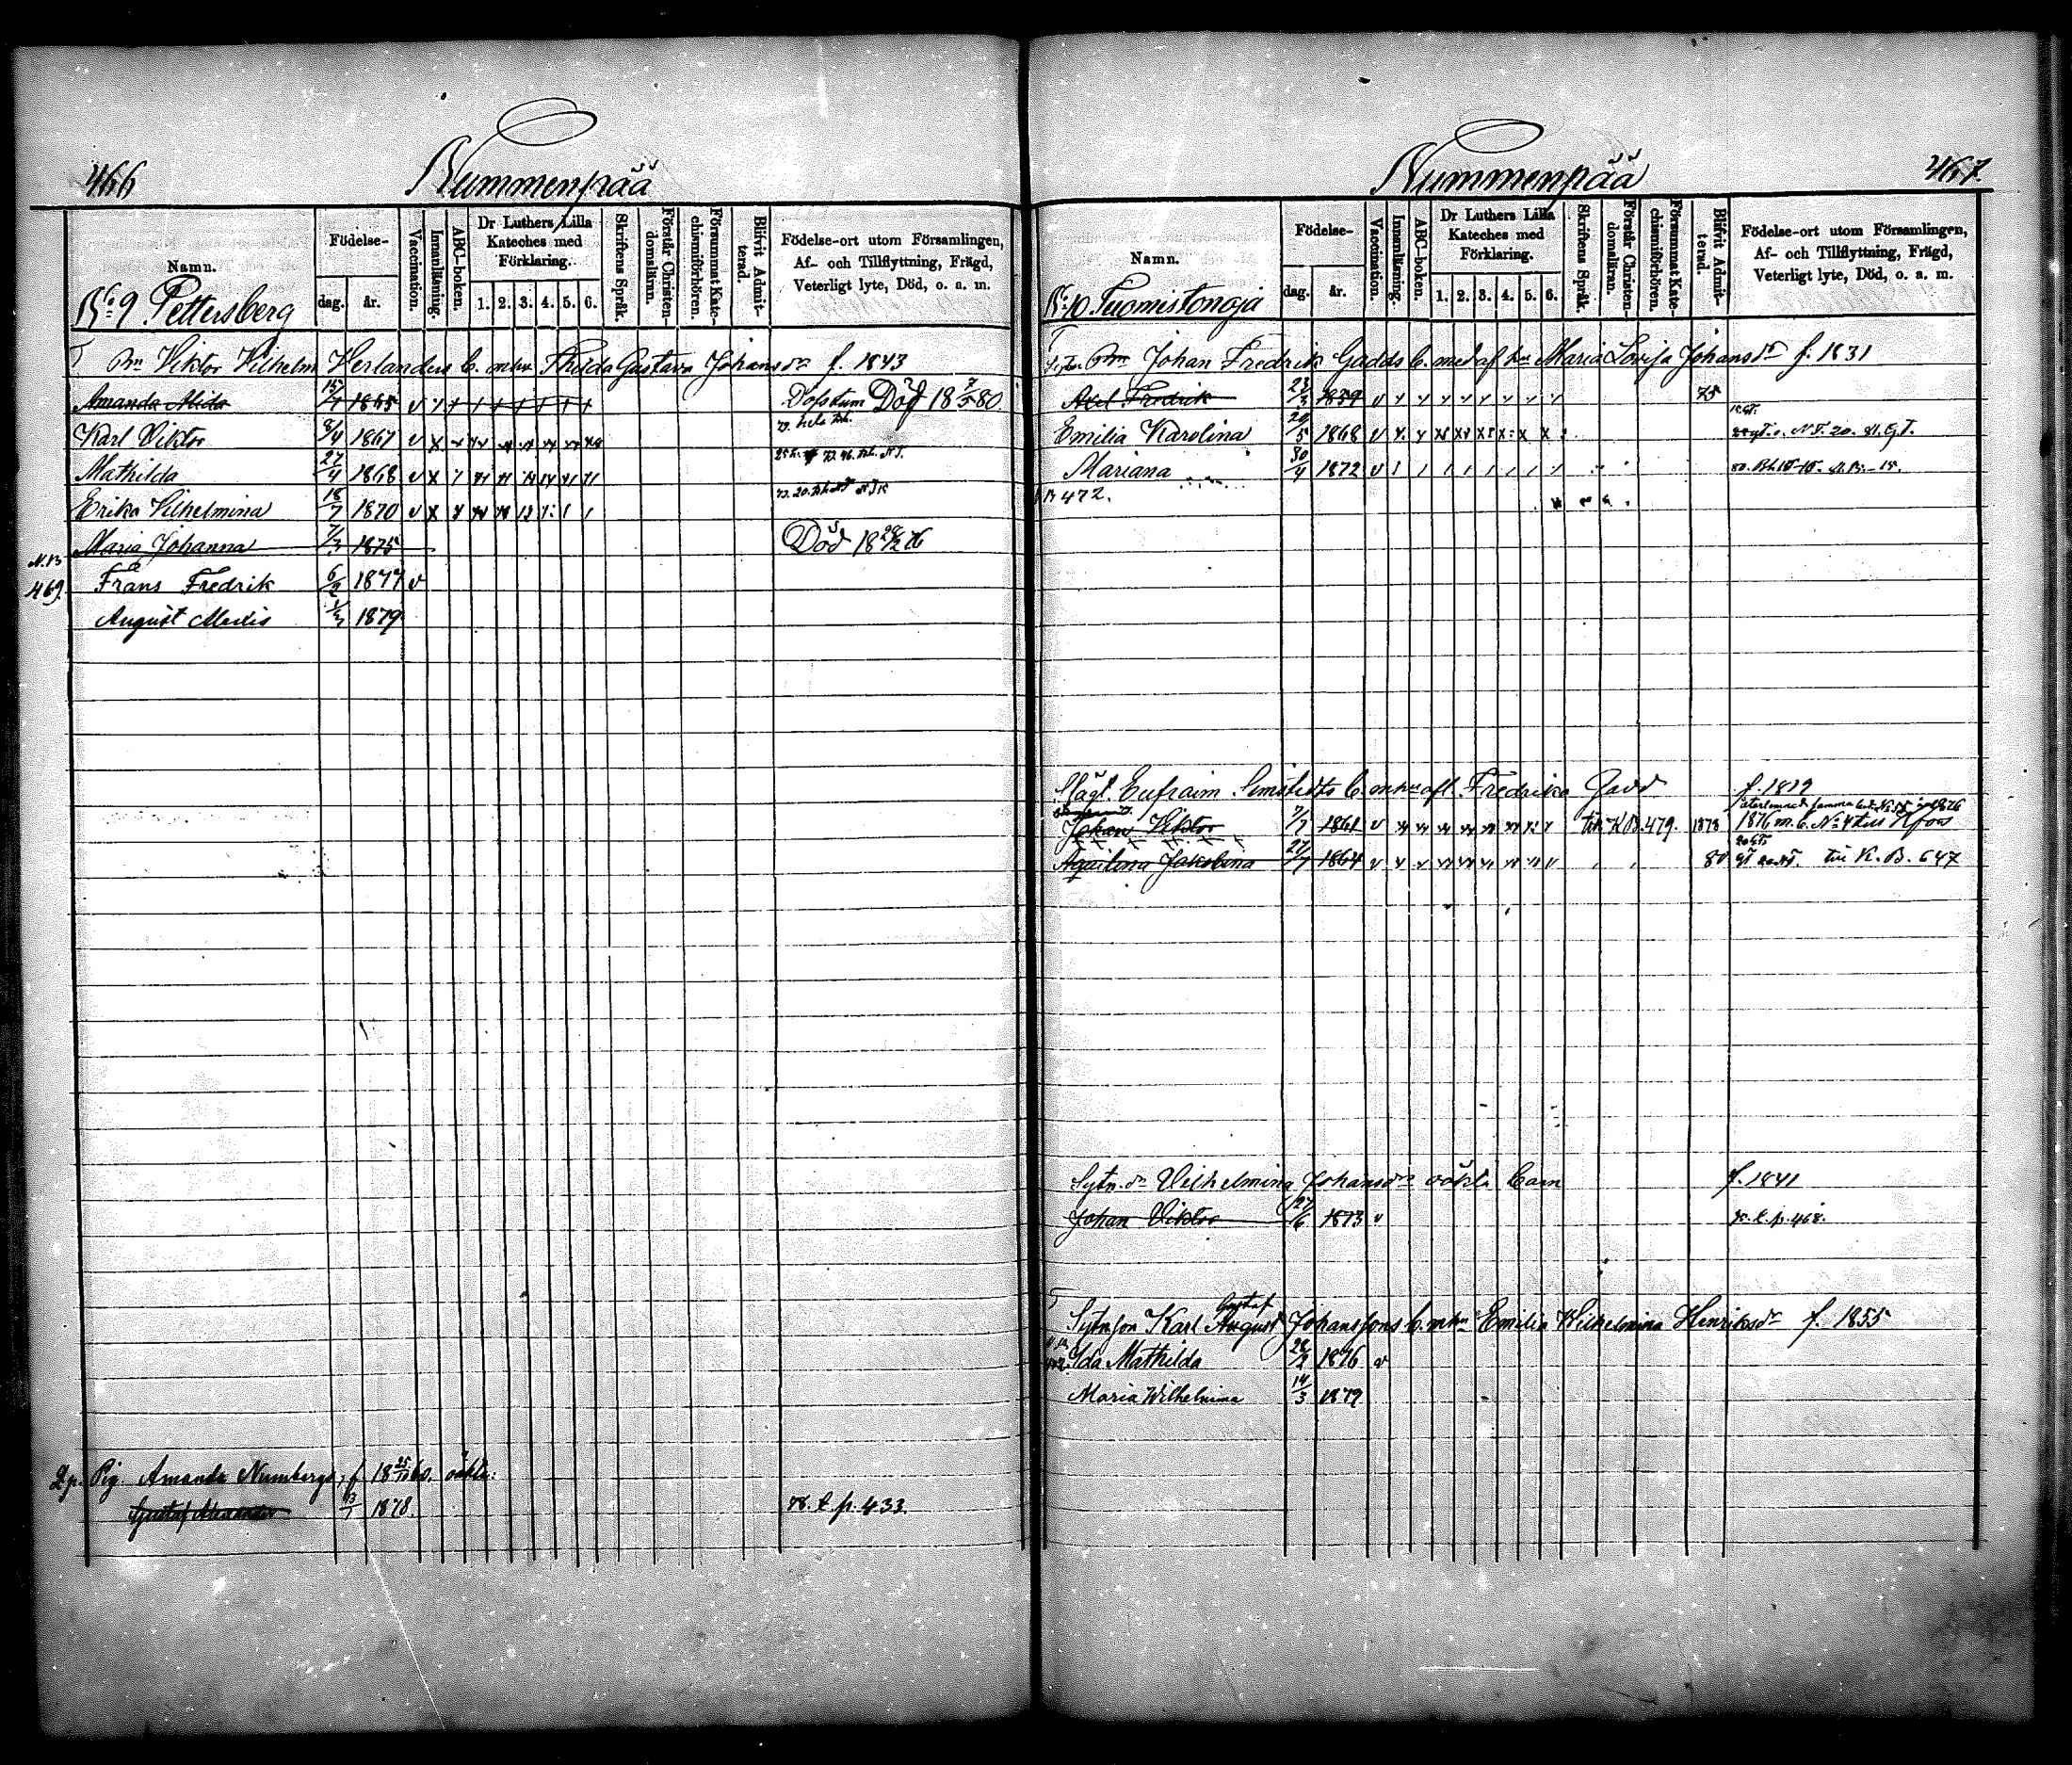 466
Nummenpää
Namn.
Födelse-
dag.
år.
Vaccination.
Innanläsning.
ABC-boken.
Dr Luthers Lilla
Kateches med
Förklaring.
1. 2. 3. 4. 5. 6.
Skriftens Språk.
Förstår Christen-
domsläran.
Försummat Kate-
chismiförhören.
Blifvit Admit-
terad.
Födelse-ort utom Församlingen,
Af- och Tillflyttning, Frägd,
Veterligt lyte, Död, o. a. m.
No 9 Pettersberg
Bn Viktor Vilhelm Herlanders b. m hu Thilda Gustava Johansdr f. 1843
Amanda Alida 15/7 1865 Döfstum Död 18 7/5 80
Karl Viktor 8/4 1867
Mathilda 27/4 1868
Erika Vilhelmina 18/7 1870
Maria Johanna 7/3 1875 Död 18 28/2 76
N.B.
469
Frans Fredrik 6/2 1877 v
August Alexis 1/3 1879
2 p. Pig. Amanda Numbergs, f 18 25/10 60. oäkta:
Gustaf Alexander 13/7 1878. 78. t. p. 433.
Nummenpää
467.
Namn.
Födelse-
dag.
år.
Vaccination.
Innanläsning.
ABC-boken.
Dr Luthers Lilla
Kateches med
Förklaring.
1. 2. 3. 4. 5. 6.
Skriftens Språk.
Förstår Christen-
domsläran.
Försummat Kate-
chismiförhören.
Blifvit Admit-
terad.
Födelse-ort utom Församlingen,
Af- och Tillflyttning, Frägd,
Veterligt lyte, Död, o. a. m.
No 10. Tuomistonoja
Johan Fredrik Gadds b. med af. hu Maria Lovisa Johansdr f. 1831
Axel Fredrik 23/3 1859 75
Emilia Karolina 20/5 1868
Mariana 30/4 1872
472.
Slägt. Eufraim Limstedts b. m hu afl. Fredrika Gadd f. 1819
Johan Viktor 7/7 1861 till K.B. 479. 1878
Aqvilina Jakobina 27/7 1864 80 till K. B. 647
Sytn. dr Vilhelmina Johansdrs oäkta barn f. 1841
Johan Viktor 27/6 1873 v 75. t. p. 468.
Gustaf
Sytn son Karl August Johanssons b. m hu Emilia Vilhelmina Henriksdr f. 1855
Ida Mathilda 28/2 1876 v
Maria Wilhelmina 14/3 1879